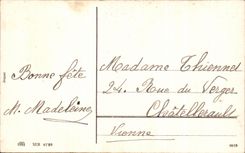 Bonne fête
M. Madeleine
Madame Thiennet
24. Rue du Verger
Châtellerault
Vienne